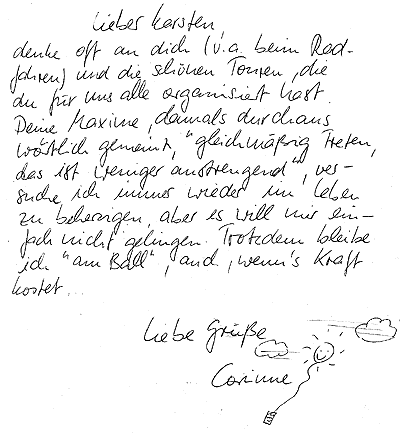 Lieber Karsten
denke oft an dich (v.a. beim Rad-
fahren) und die schönen Touren, die
du für uns alle organisiert hast.
Deine Maxime, damals durchaus
wörtlich gemeint, "gleichmäßig treten,
das ist weniger anstrengend", ver-
suche ich immer wieder im Leben
zu beherzigen, aber es will mir ein-
fach nicht gelingen. Trotzdem bleibe
ich "am Ball", auch, wenn's Kraft
kostet...
Liebe Grüße
Corinne